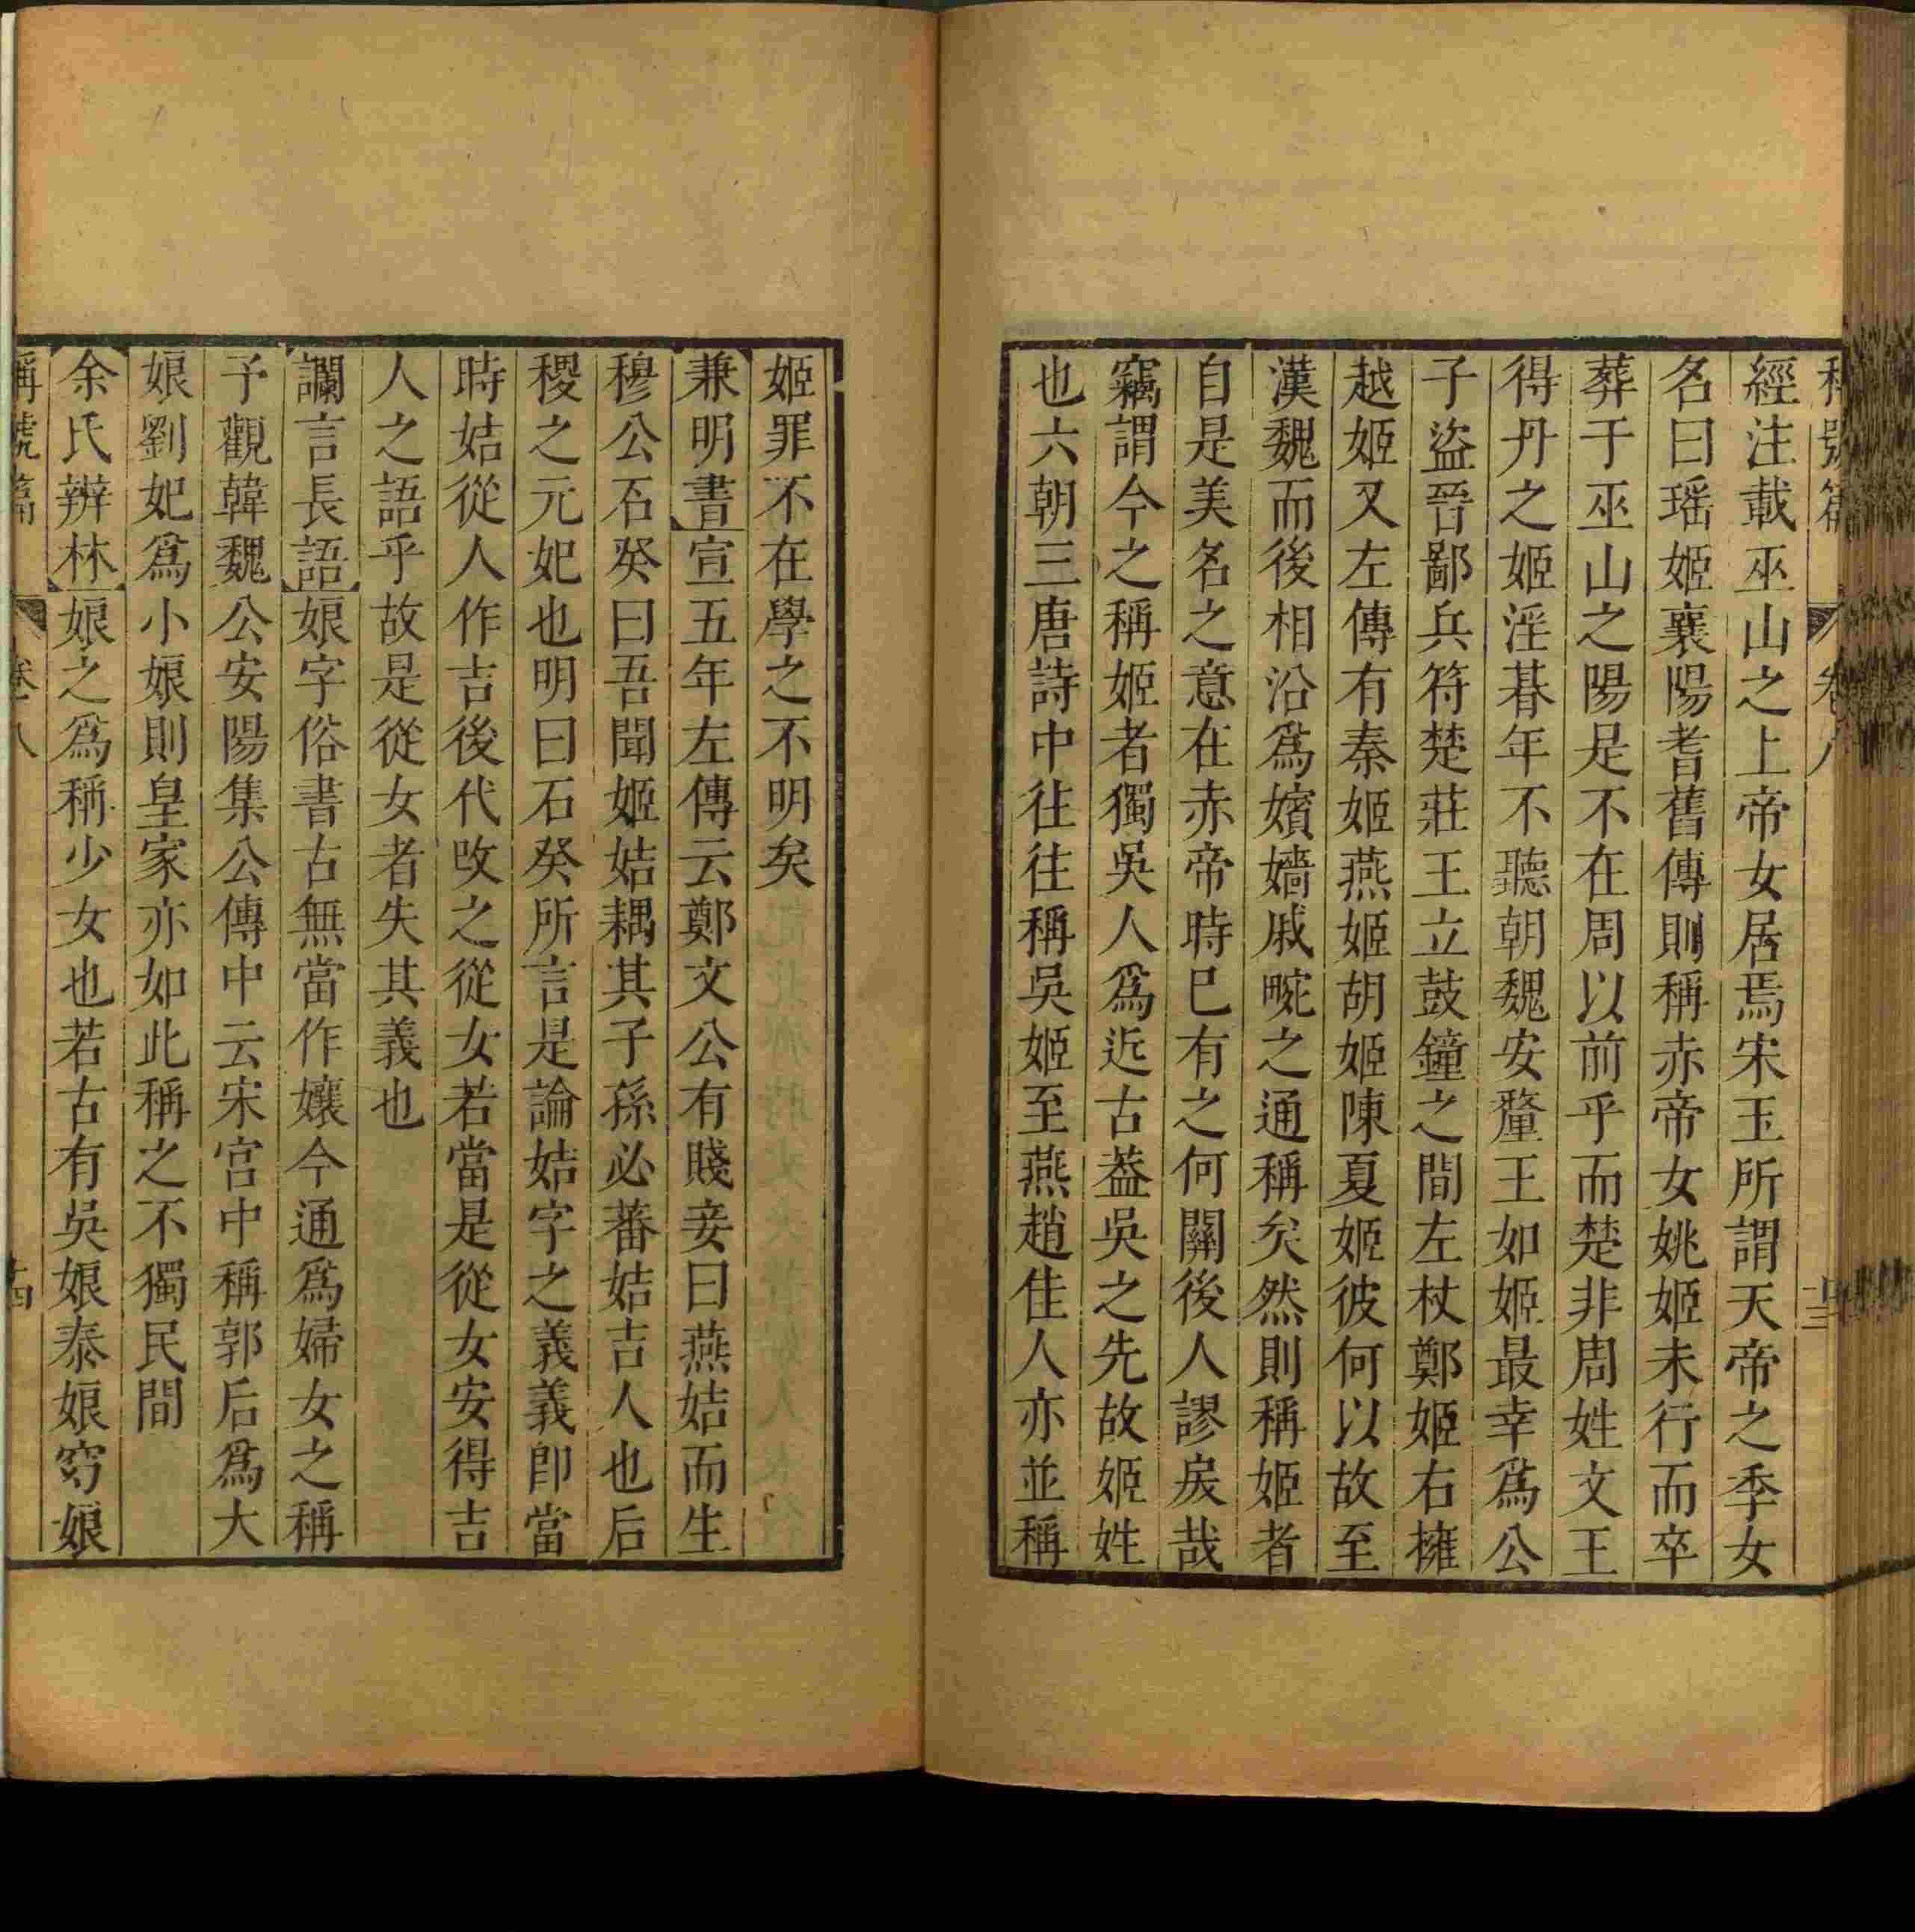 稱號篇 卷八 十三
經注載巫山之上帝女居焉宋玉所謂天帝之季女
名曰瑶姬襄陽耆舊傳則稱赤帝女姚姬未行而卒
葬于巫山之陽是不在周以前乎而楚非周姓文王
得丹之姬淫朞年不聽朝魏安釐王如姬最幸爲公
子盜晉鄙兵符楚莊王立鼓鐘之間左杖鄭姬右擁
越姬又左傳有秦姬燕姬胡姬陳夏姬彼何以故至
漢魏而後相沿爲嬪嬙戚畹之通稱矣然則稱姬者
自是美名之意在赤帝時巳有之何關後人謬戾哉
竊謂今之稱姬者獨吳人爲近古葢吳之先故姬姓
也六朝三唐詩中往往稱吳姬至燕趙佳人亦並稱
姬罪不在學之不明矣
兼明書宣五年左傳云鄭文公有賤妾曰燕姞而生
穆公石癸曰吾聞姬姞耦其子孫必蕃姞吉人也后
稷之元妃也明曰石癸所言是論姞字之義義卽當
時姞從人作吉後代改之從女若當是從女安得吉
人之語乎故是從女者失其義也
讕言長語娘字俗書古無當作孃今通爲婦女之稱
予觀韓魏公安陽集公傳中云宋宫中稱郭后爲大
娘劉妃爲小娘則皇家亦如此稱之不獨民間
余氏辨林娘之爲稱少女也若古有吳娘泰娘窈娘
稱號篇 卷八 十四